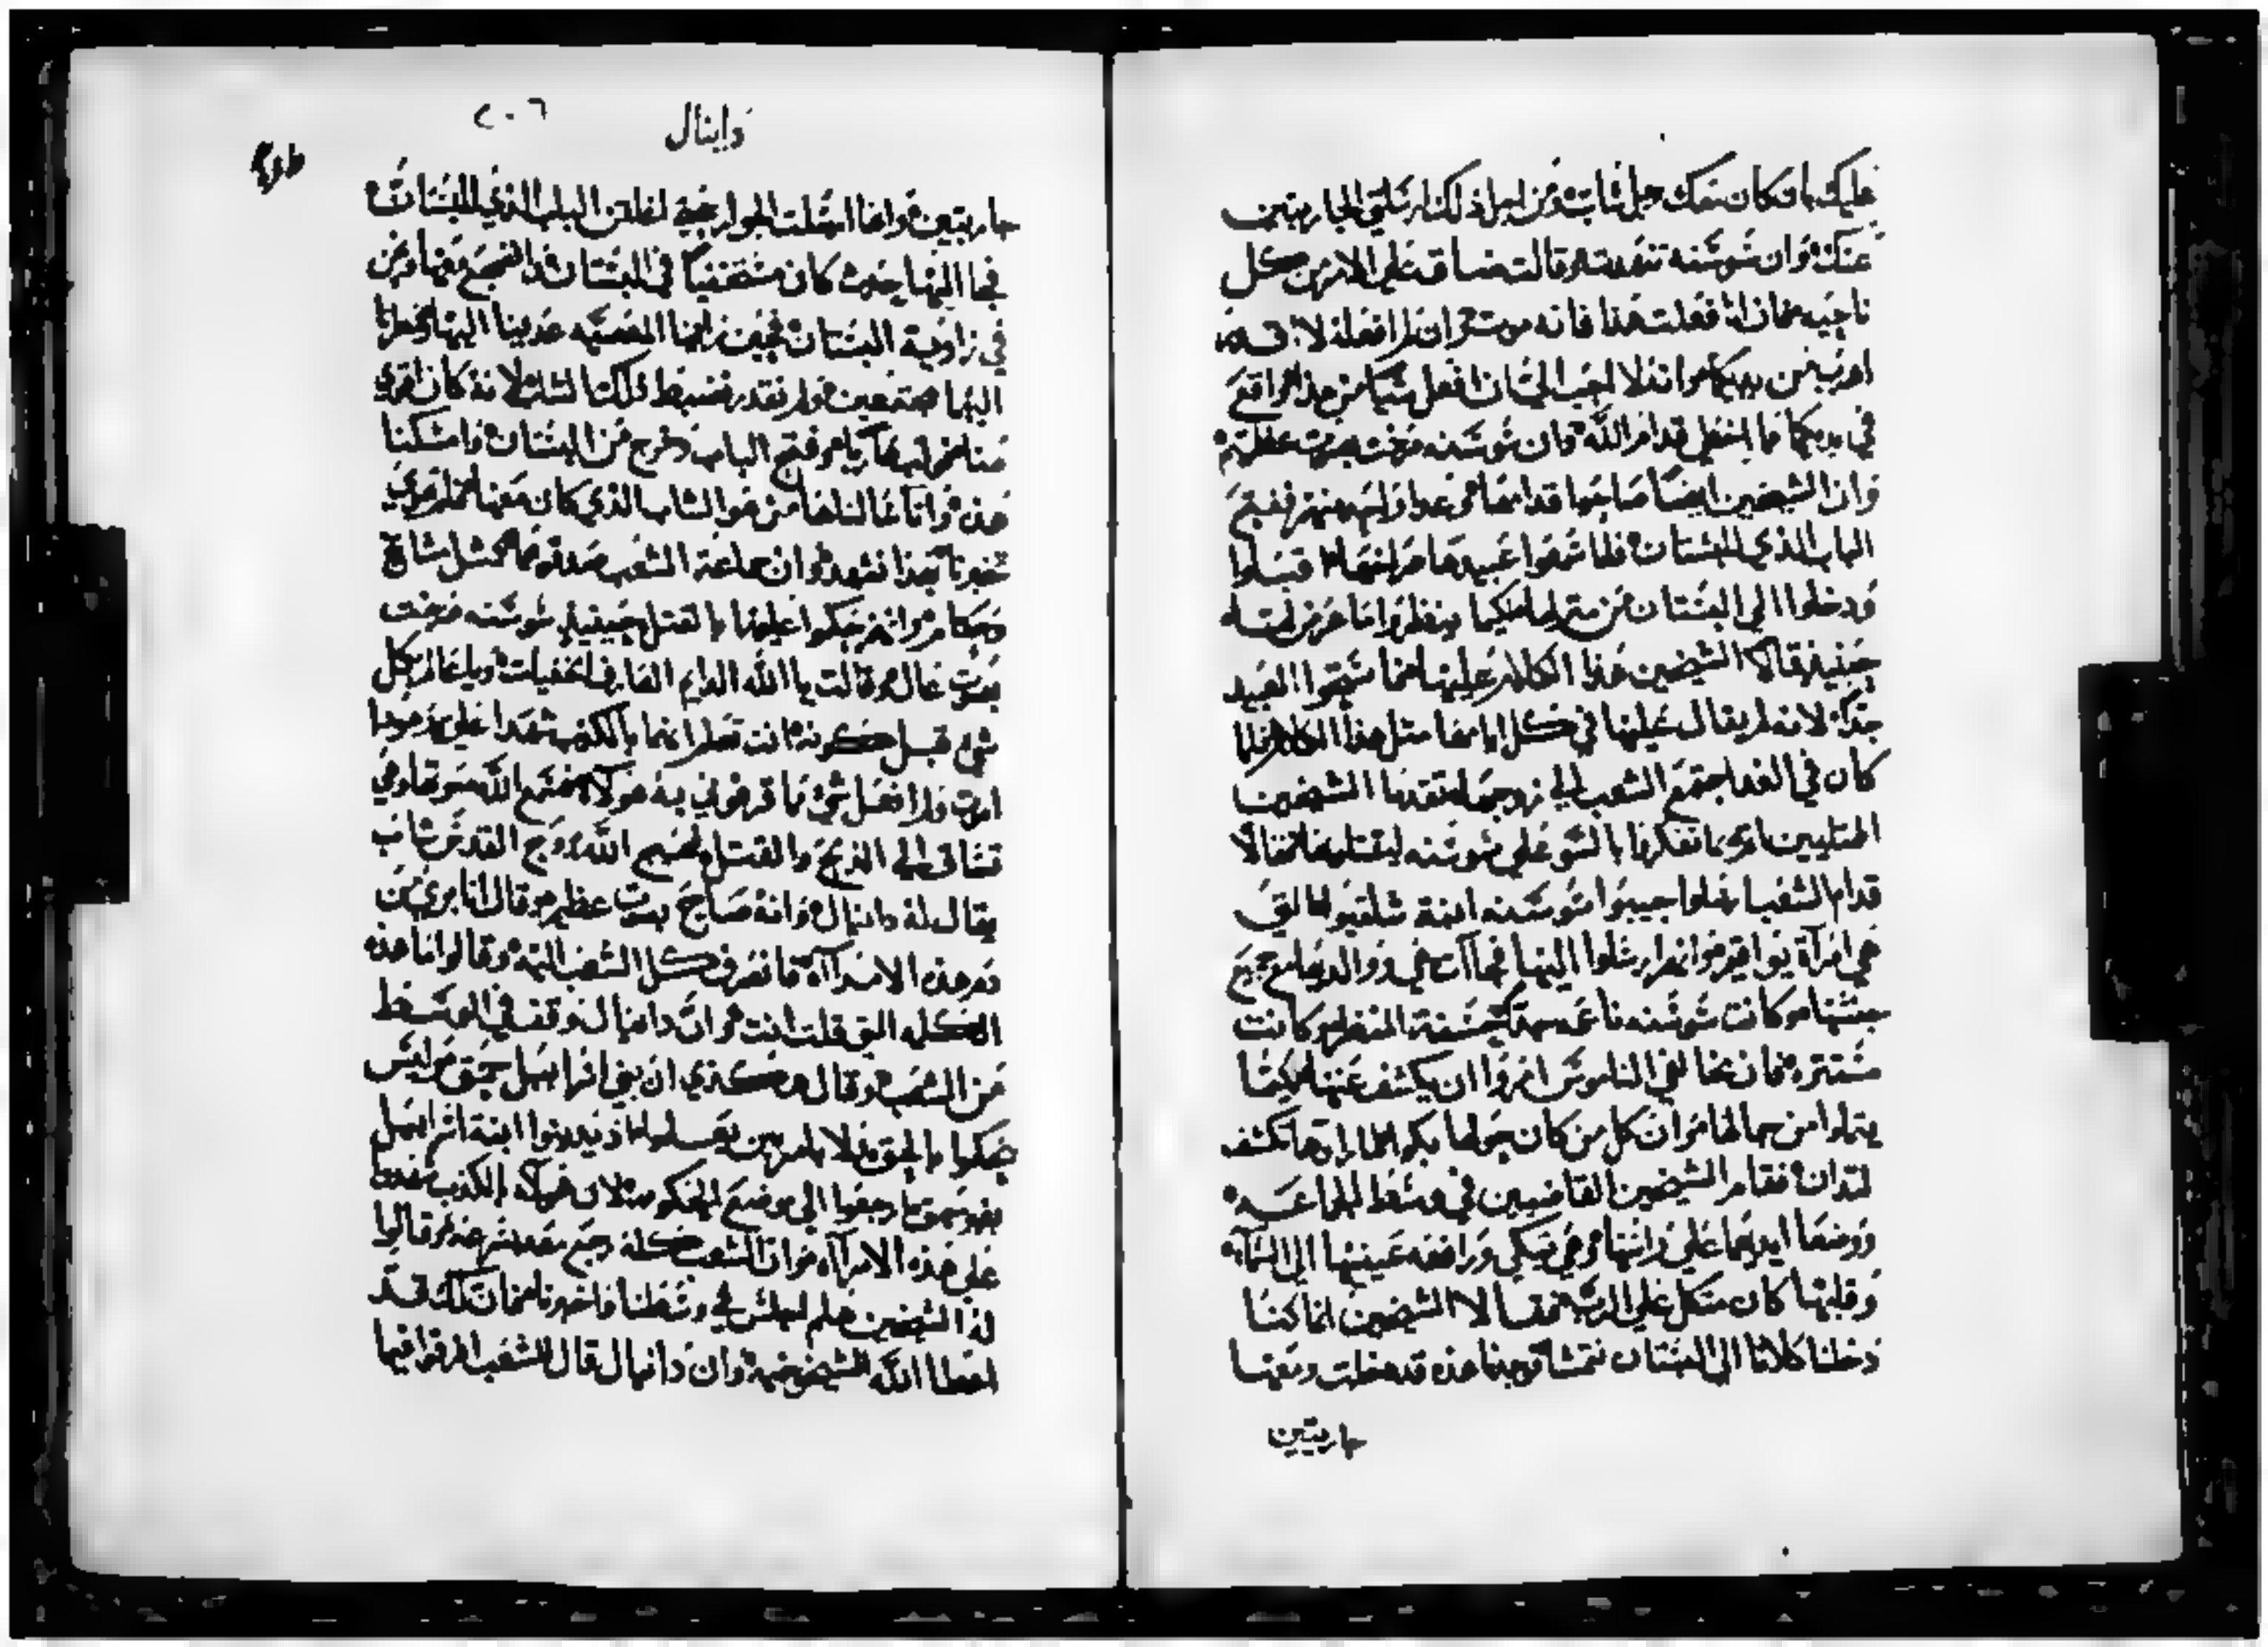 عليك بان كان معك رجل شاب ومن اجل ذلك ارسلتي الجاريتين
عنك وان شوشنه تنهدت وقالت ضاق علي الامر من كل
ناحيه فان انا فعلت هذا فانه موت وان لم افعله لا
اهرب من يديكما وانه لا يجب الي ان افعل شيا من هذا واقع
في يديكما ما اخطي قدام الله وان شوشنه صرخت بصوت عظيم
وان الشيخين ايضا صاحوا قدامها وعدا واحد منهم ففتح
الباب الذي للبستان فلما سمعوا عبيدها صراخها
ودخلوا الي البستان من منزلها لكيما ينظروا ما عرض لها
حينيذ قالا الشيخين هذا الكلام عليها فاستحوا العبيد
جدا لانه لم يقال عليها في كل ايامها مثل هذا الكلام فلما
كان في الغد اجتمع الشعب الي زوجها تقدما الشيخين
الممتليين بالسو علي شوشنه ليقتلوها فقالا
قدام الشعب ارسلوا جيبوا شوشنه ابنة شلقيوا التي
هي امراة يواقيم وانهم ارسلوا اليها فجاات هي ووالديها مع جميع
جنسها وكانت شوشنه ناعمه جدا حسنة المنظر وكانت
مستتره فان مخالفي الناموس امروا ان يكشف عنها لكيما
يتملوا من جمالها وان كل من كان حولها بكوا
فقام الشيخين القاضيين في وسط الجماعه
ووضعا ايديهما علي راسها وهي تبكي ورافعه عينيها الي السماء
وقلبها كان متكل علي الرب فقالا الشيخين اننا كنا
دخلنا كلانا الي البستان نتمشا وجدنا هذه قد دخلت ومعها
جاريتين
دانيال
٢٠٦
جاريتين وانها ارسلت الجوار لغلقن الباب الذي للبستان
فجا اليها حيث كان مستخفيا في البستان واضجع معها ونحن
في زاوية البستان فحين راينا المعصيه عدينا اليها فنظرنا
اليهما مجتمعين ولم نقدر نضبط ذلك الشاب لانه كان اقوي
منا ففتح الباب وخرج من البستان وامسكنا
هذه وانا سالناها من هو الشاب الذي كان معها فلم
تخبرنا بهذا نشهد وان جماعة الشعب صدقوهما كمثل مشايخ
وحكام وانهم حكموا عليها بالقتل حينيذ شوشنه صرخت
بصوت عال وقالت يا الله الدايم العارف الخفيات ويا عالم بكل
شي قبل كونه انت تعلم انهما بالكذب شهدا علي وهوذا
اموت ولم افعل شي مما قرفوني به هولاء فسمع الله صوتها وهي
تساق الي الذبح والقتل الله روح القدس شاب
يقال له دانيال وانه صاح بصوت عظيم وقال انا بري من
دم هذه الامراه فانصرف كل الشعب اليه وقالوا ما هذه
الكلمه التي قلت انت وان دانيال وقف في الوسط
من الشعب وقال هكذي ان بني اسراييل حمق وليس
يحكموا بالحق ابنة اسراييل
ارجعوا الي موضع الحكومه لان هولاء بالكذب شهدوا
علي هذه الامراه وان الشعب كله رجع بسرعه وقالوا
له الشيخين هلم اجلس في وسطنا واخبرنا فان لك قد
اعطا الله الشيخوخيه وان دانيال قال للشعب افرقوا فيما